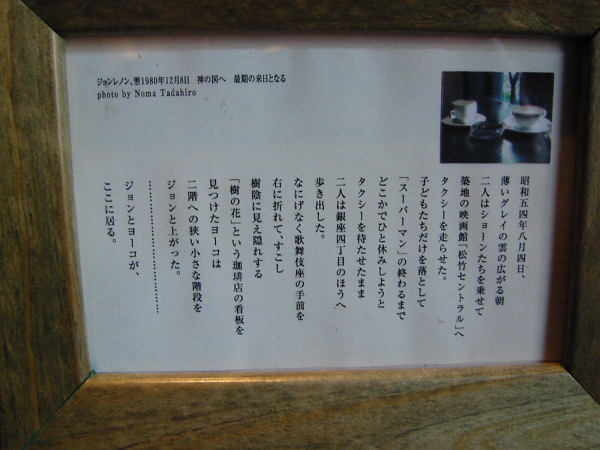 ジョンレノン、翌1980年12月8日　神の国へ　最期の来日となる
photo by Noma Tadahiro
昭和五四年八月四日、
薄いグレイの雲の広がる朝
二人はショーンたちを乗せて
築地の映画館「松竹セントラル」へ
タクシーを走らせた。
子どもたちだけを落として
「スーパーマン」の終わるまで
どこかでひと休みしようと
タクシーを待たせたまま
二人は銀座四丁目のほうへ
歩き出した。
なにげなく歌舞伎座の手前を
右に折れて、すこし
樹陰に見え隠れする
「樹の花」という珈琲店の看板を
見つけたヨーコは
二階への狭い小さな階段を
ジョンと上がった。
………………………………
ジョンとヨーコが、
ここに居る。